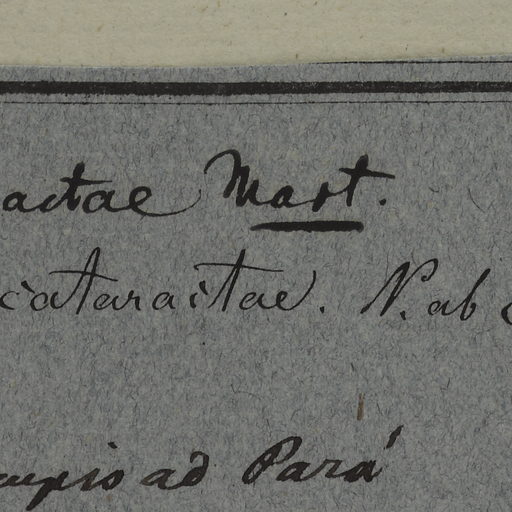 actae Mart.
cataractae. N. ab
ad Pará